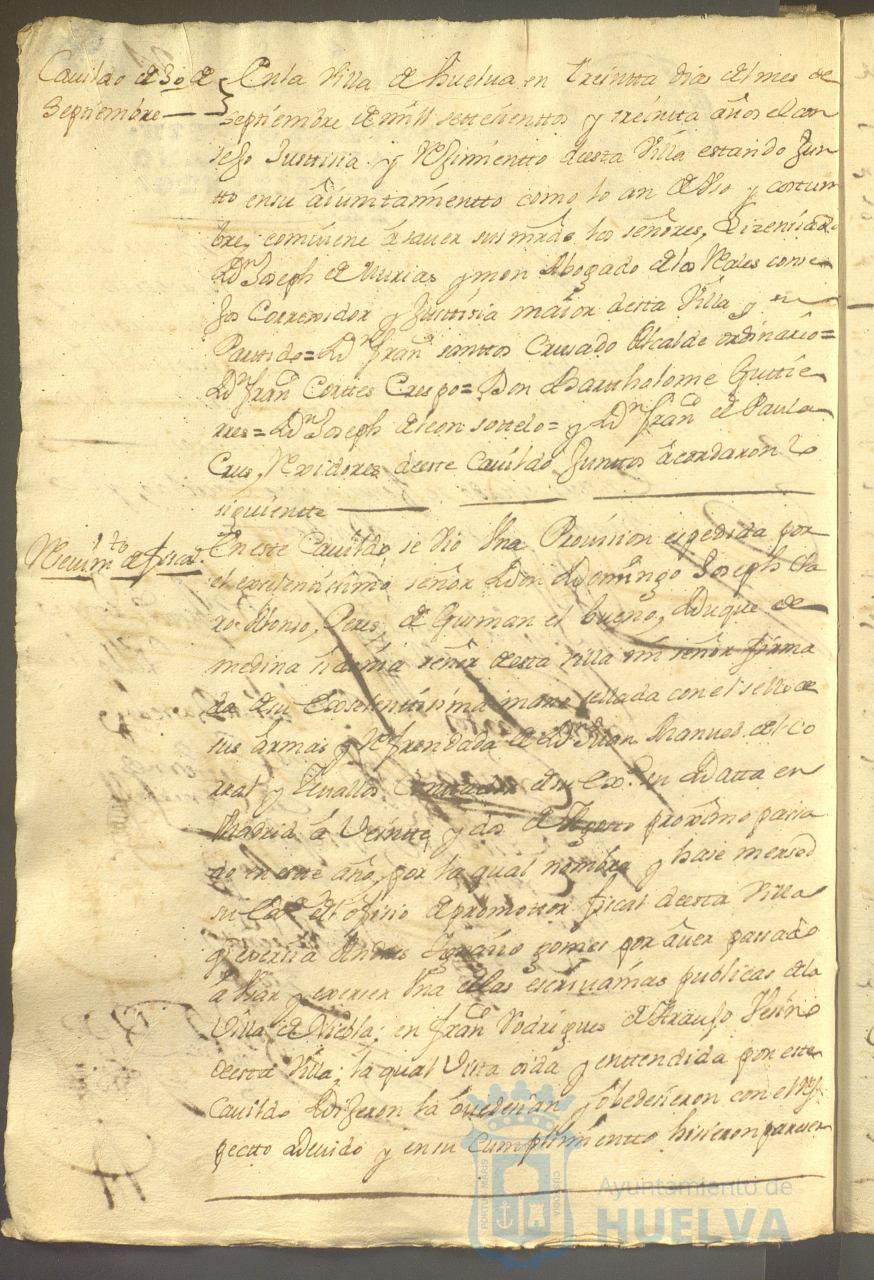 Cavildo de 30 de
Septiembre
En la Villa de Huelva en treintta dias del mes de
septiembre de mill settesienttos y treintta años el con
sejo Justtisia y Rejimientto desta Villa estando Jun
tto en su aiuntamientto como lo an de Uso y costum
bre, combiene a saver sus mrds los señores, Lizensiado
Dn Joseph de Murias ymon Abogado de los Rales conse
jos Correxidor y Justtisia maior desta Villa y su
Partido= Dn Franco santtos Crusado Alcalde ordinario=
Dn Franco Corttes Crespo= Don Bartholome Guttie
rres= Dn Joseph de leon sotelo= y Dn Franco de Paula
Crus, Rexidores deste Cavildo Junttos acordaron lo
siguientte
Recivimto de fiscal
En este Cavildo, se vio Una Provision expedida por
el exselentisimo señor Don Domingo Joseph Cla
ros Alfonso, Peres de Gusman el bueno, Duque de
medina sidonia señor desta villa mi señor firma
da de su Exselentisima mano sellada con el sello de
sus armas y Refrendada de Dn Juan Manuel del Co
rral y su Exa su Datta en
Madrid a Veintte y dos de Agosto proximo pasa
do en este año, por la qual nombra y hase mersed
su Exa del ofisio de promottor fiscal desta Villa
q exersia Andres gomes por aver pasado
a Usar y exerser Una de las escrivanias publicas de la
Villa de Niebla; en Franco Rodrigues de Araujo Vesino
desta Villa; la qual Vista oida y enttendida por este
Cavildo Dijeron la ovedesian y obedesieron con el Res
pectto devido y en su Cumplimientto hisieron pareser
PORTUS MARIS
CUSTODIA
Ayuntamiento de
HUELVA